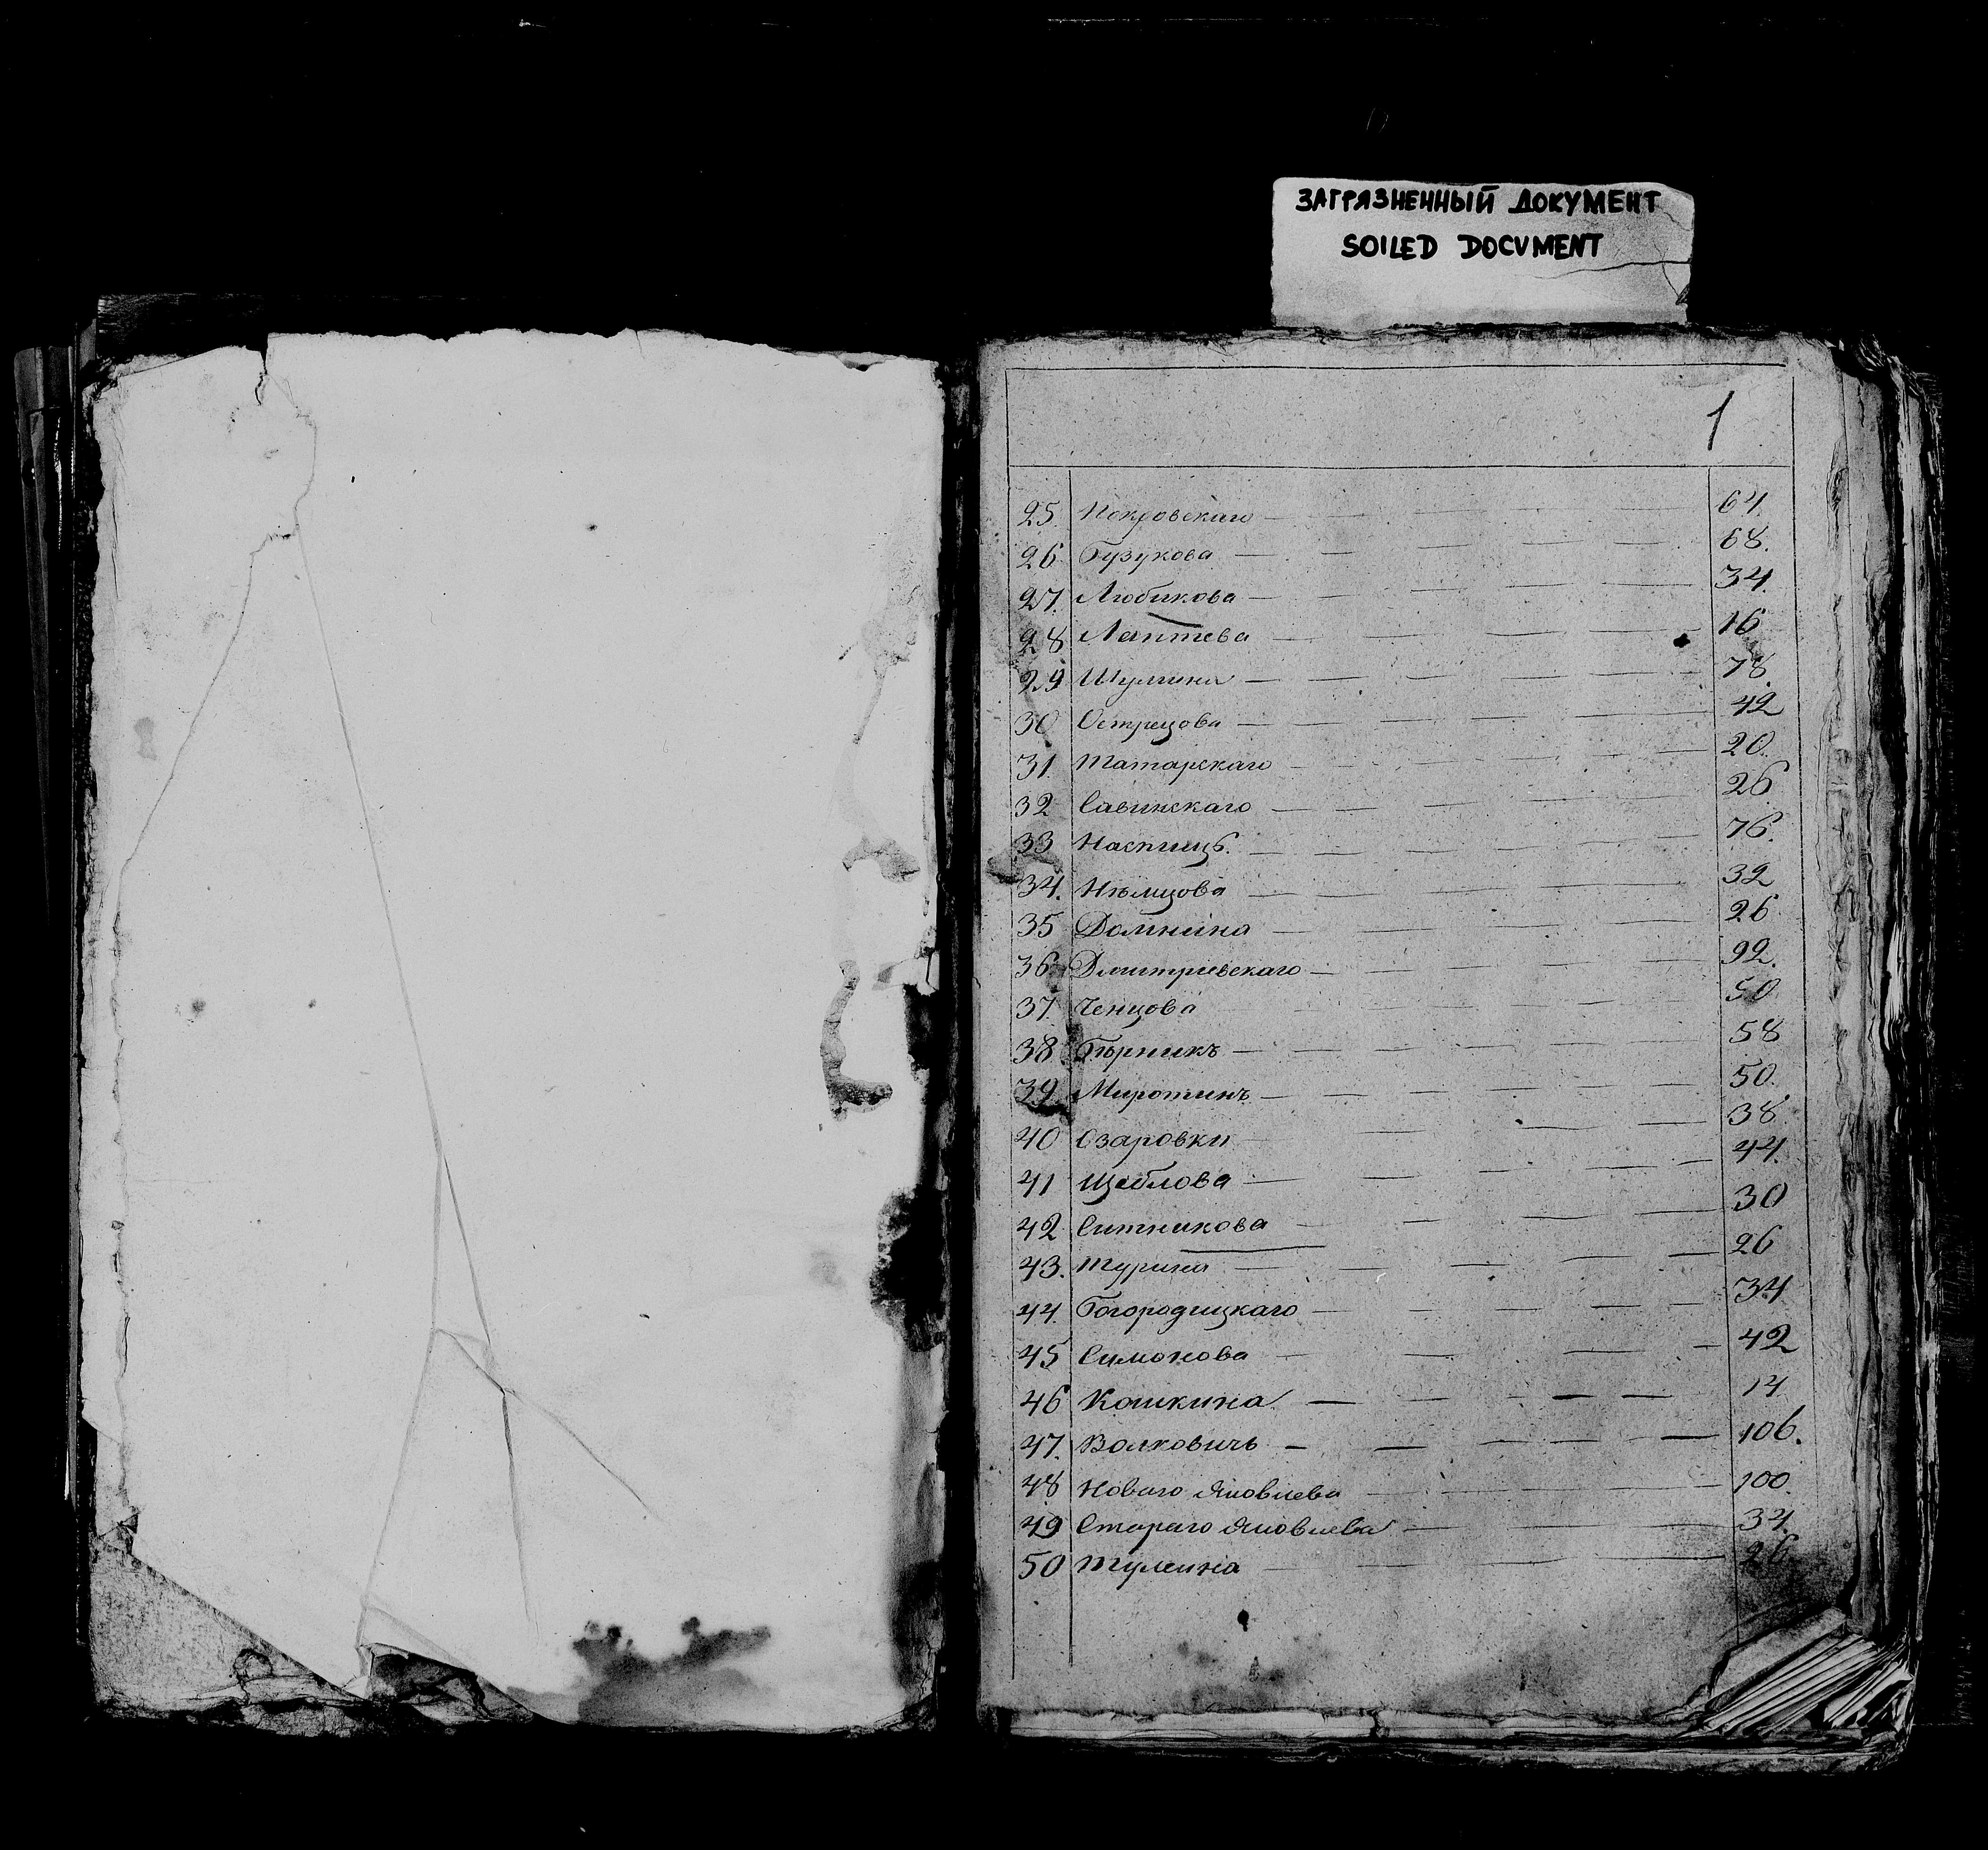 ЗАГРЯЗНЕННЫЙ ДОКУМЕНТ
SOILED DOCUMENT
1
25. Покровскаго — 64.
26 Бузукова — 68.
27. Любикова — 34.
28 Лаптева — 16
29 Шулгина — 78.
30 Острецова — 42
31. Татарскаго — 20.
32 Савинскаго — 26
33 — 76.
34. Нѣмцова — 32
35 Домнина — 26
36. Дмитріевскаго — 92.
37. Ченцова — 50
38 Бѣрникъ — 58
39 Миротинъ — 50.
40 Озаровки — 38.
41 Щеблова — 44.
42 Ситникова — 30
43. Турина — 26
44. Богородицкаго — 34
45 Симонова — 42
46 Кошкина — 14
47. Волковичь — 106.
48 Новаго Яковлева — 100.
49 Стараго Яковлева — 34.
50 — 26